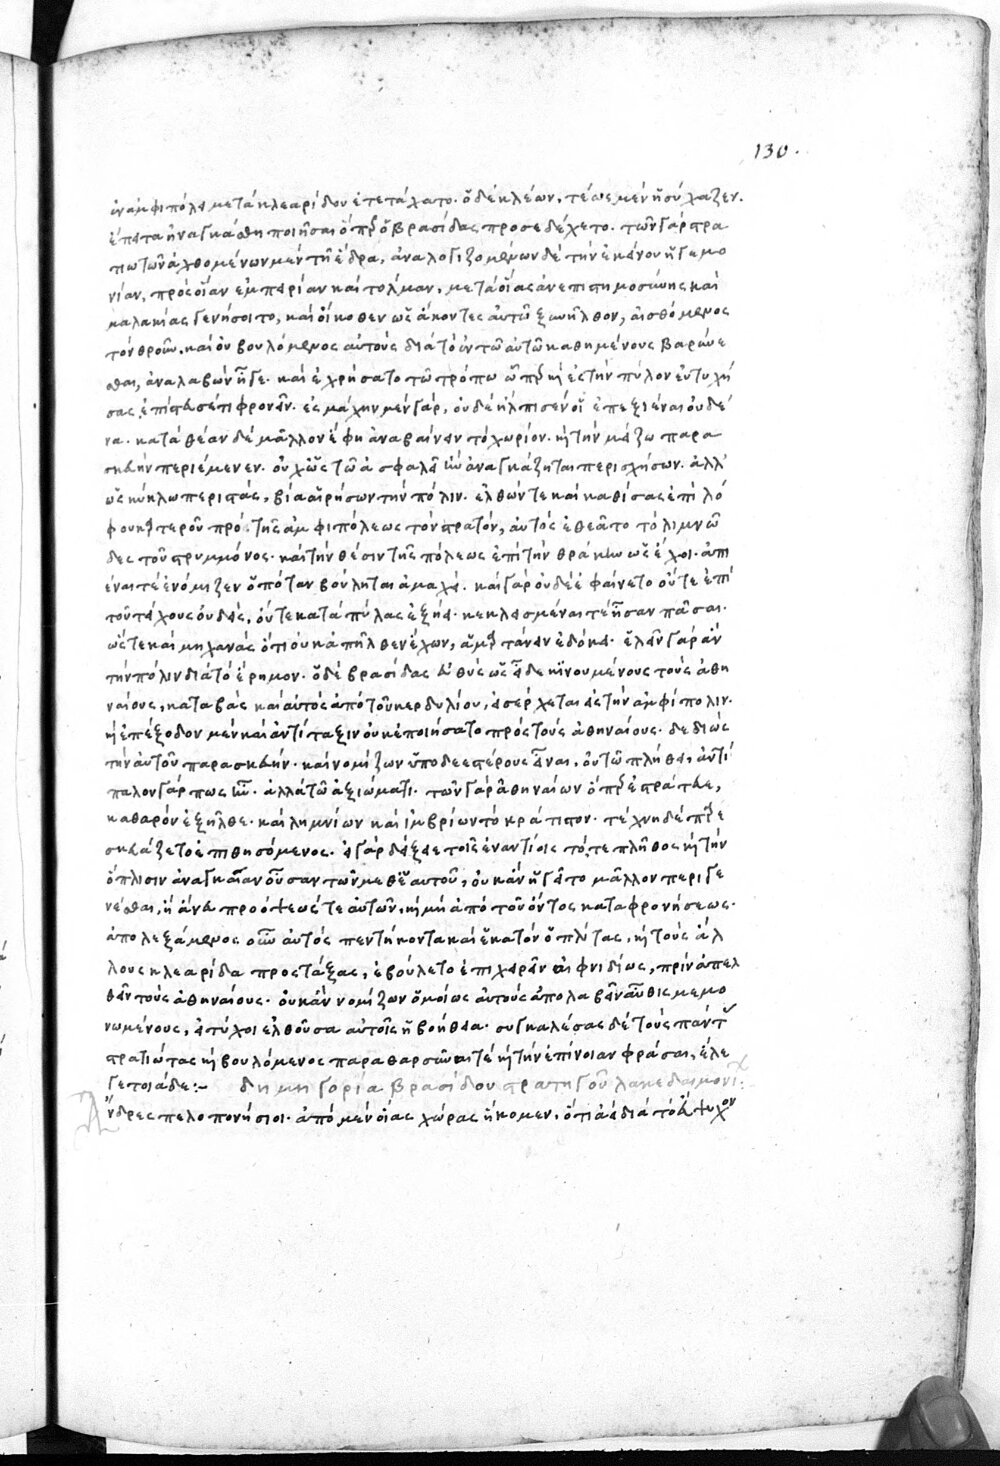 130.
ἐν ἀμφιπόλει μετὰ κλεαρίδου ἐτετάχατο· ὁ δὲ κλέων, τέως μὲν ἡσύχαζεν.
ἔπειτα ἠναγκάσθη ποιῆσαι ὅπερ ὁ βρασίδας προσεδέχετο. τῶν γὰρ στρα
τιωτῶν ἀχθομένων μὲν τῆ ἕδρα, ἀναλογιζομένων δὲ τὴν ἐκείνου ἡγεμο
νίαν, πρὸς οἵαν ἐμπειρίαν καὶ τόλμαν, μετὰ οἵας ἀνεπιστημοσύνης καὶ
μαλακίας γενήσοιτο, καὶ οἴκοθεν ὡς ἄκοντες αὐτῶ ξυνῆλθον, αἰσθόμενος
τὸν θροῦν. καὶ οὐ βουλόμενος αὐτοὺς διὰ τὸ ἐν τῶ αὐτῶ καθημένους βαρύνε
σθαι, ἀναλαβὼν ἦγε· καὶ ἐχρήσατο τῶ τρόπω ὧπερ καὶ ἐς τὴν πύλον εὐτυχή
σας ἐπίστευσέ τι φρονεῖν. ἐς μάχην μὲν γάρ, οὐδὲ ἤλπισέν οἷ ἐπεξιέναι οὐδέ
να. κατὰ θέαν δὲ μᾶλλον ἔφη ἀναβαίνειν τὸ χωρίον. καὶ τὴν μείζω παρα
σκευὴν περιέμενεν. οὐχ ὡς τῶ ἀσφαλεῖ ἢν ἀναγκάζηται περισχήσων. ἀλλ'
ὡς κύκλω περιστὰς, βία αἱρήσων τὴν πόλιν. ἐλθών τε καὶ καθίσας ἐπὶ λό
φου καρτεροῦ πρὸ τῆς ἀμφιπόλεως τὸν στρατόν, αὐτὸς ἐθεᾶτο τὸ λιμνῶ
δες τοῦ στρυμμόνος. καὶ τὴν θέσιν τῆς πόλεως ἐπὶ τὴν θράκην ὡς ἔχοι. ἀπι
έναι τὲ ἐνόμιζεν ὁπόταν βούληται ἀμαχεί. καὶ γὰρ οὐδὲ ἐφαίνετο οὔτε ἐπὶ
τοῦ τείχους οὐδείς, οὔτε κατὰ πύλας ἐξήει. κεκλεισμέναι τὲ ἦσαν πᾶσαι.
ὥστε καὶ μηχανὰς ὅτι οὐκ ἀπῆλθεν ἔχων, ἁμαρτάνειν ἐδόκει. ἑλεῖν γὰρ ἂν
τὴν πόλιν διὰ τὸ ἔρημον. ὁ δὲ βρασίδας εὐθὺς ὡς εἶδε κινουμένους τοὺς ἀθη
ναίους, καταβὰς καὶ αὐτὸς ἀπὸ τοῦ κερδυλίου, ἐσέρχεται ἐς τὴν ἀμφίπολιν.
καὶ ἐπέξοδον μὲν καὶ ἀντίταξιν οὐκ ἐποιήσατο πρὸς τοὺς ἀθηναίους. δεδιὼς
τὴν αὐτοῦ παρασκευήν. καὶ νομίζων ὑποδεεστέρους εἶναι, οὐ τῶ πλήθει, ἀντί
παλον γάρ πως ἦν. ἀλλὰ τῶ ἀξιώματι. τῶν γὰρ ἀθηναίων ὅπερ ἐστράτευε,
καθαρὸν ἐξῆλθε. καὶ λημνίων καὶ ἰμβρίων τὸ κράτιστον. τέχνη δὲ παρε
σκευάζετο ἐπιθησόμενος. εἰ γὰρ δείξειε τοῖς ἐναντίοις τό, τε πλῆθος καὶ τὴν
ὅπλισιν ἀναγκαίαν οὖσαν τῶν μεθ' ἑαυτοῦ, οὐκ ἂν ἡγεῖτο μᾶλλον περιγε
νέσθαι, ἢ ἄνευ προόψεώς τε αὐτῶν, καὶ μὴ ἀπὸ τοῦ ὄντος καταφρονήσεως.
ἀπολεξάμενος οὖν αὐτὸς πεντήκοντα καὶ ἑκατὸν ὁπλίτας, καὶ τοὺς ἄλ
λους κλεαρίδα προστάξας, ἐβούλετο ἐπιχειρεῖν αἰφνιδίως, πρὶν ἀπελ
θεῖν τοὺς ἀθηναίους. οὐκ ἂν νομίζων ὁμοίως αὐτοὺς ἀπολαβεῖν αὖθις μεμο
νωμένους, εἰ τύχοι ἐλθοῦσα αὐτοῖς ἡ βοήθεια. συγκαλέσας δὲ τοὺς πάντας
στρατιώτας καὶ βουλόμενος παραθαρσῦναί τὲ καὶ τὴν ἐπίνοιαν φράσαι, ἔλε
γε τοιάδε:– δημηγορία βρασίδου στρατηγοῦ λακεδαιμονίων:
Ἄνδρες πελοπονήσιοι. ἀπὸ μὲν οἵας χώρας ἥκομεν, ὅτι ἀεὶ διὰ τὸ εὔψυχον